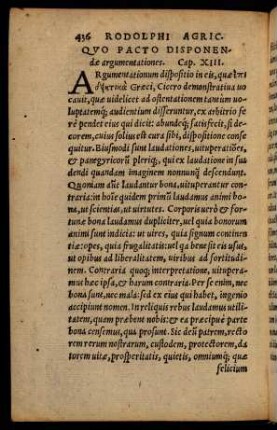 436 RODOLPHI AGRIC.
QVO PACTO DISPONEN-
dæ argumentationes. Cap. XIII.
ARgumentationum dispositio in eis, quæ ἐπι
δ'ηκτικὰ Græci, Cicero demonstratiua uo
cauit, quæ uidelicet ad ostentationem tantum uo-
luptatemq; audientium disseruntur, ex arbitrio fe
rè pendet eius qui dicit: abundeq́; satisfecit, si de-
corem, cuius solius est cura sibi, dispositione conse
quitur. Eiusmodi sunt laudationes, uituperatiões,
& panegyricorũ pleriq;, qui ex laudatione in sua
dendi quandam imaginem nonnunq̃ descendunt.
Quoniam aũt laudantur bona, uituperantur con-
traria: in hoĩe quidem primũ laudamus animi bo-
na, ut scientias, ut uirtutes. Corporis uerò & for-
tunæ bona laudamus dupliciter, uel quia bonorum
animi sunt indicia: ut uires, quia signum continen
tiæ: opes, quia frugalitatis: uel quia bene sit eis usus,
ut opibus ad liberalitatem, uiribus ad fortitudi-
nem. Contraria quoq; interpretatione, uitupera-
mus hæc ipsa, & harum contraria. Per se enim, nec
bona sunt, nec mala: sed ex eius qui habet, ingenio
accipiunt nomen. In reliquis rebus laudamus utili-
tatem, quam præbent nobis: & ea præcipuè parte
bona censemus, qua prosunt. Sic deũ patrem, recto
rem rerum nostrarum, custodem, protectorem, da
torem uitæ, prosperitatis, quietis, omniumq́; quæ
felicium